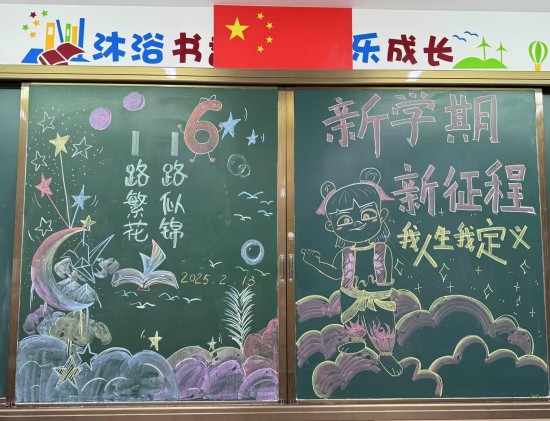 沐浴书 乐成长
6
一路繁花
一路似锦
2025.2.13
新学期
新征程
我人生我定义